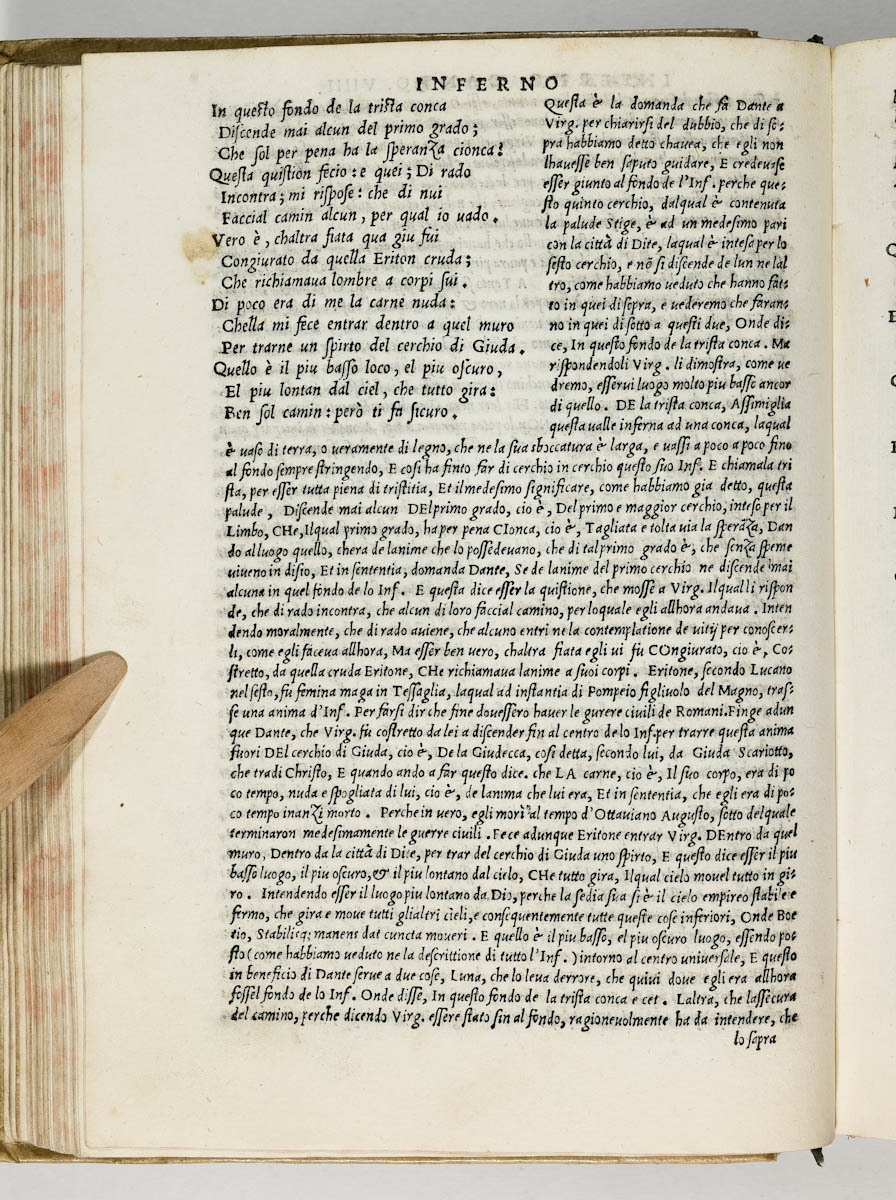 INFERNO
In questo fondo de la trista conca
Discende mai alcun del primo grado;
Che sol per pena ha la speranza cionca?
Questa quistion fecio: e quei; Di rado
Incontra; mi rispose: che di nui
Faccial camin alcun, per qual io vado.
Vero è, chaltra fiata qua giu fui
Congiurato da quella Eriton cruda;
Che richiamava lombre a corpi sui.
Di poco era di me la carne nuda:
Chella mi fece entrar dentro a quel muro
Per trarne un spirto del cerchio di Giuda.
Quello è il piu basso loco, el piu oscuro,
El piu lontan dal ciel, che tutto gira:
Ben sol camin: però ti fa sicuro.
Questa è la domanda che fa Dante a
Virg. per chiarirsi del dubbio, che di so-
pra habbiamo detto chavea, che egli non
lhavesse ben saputo guidare, E credevase
esser giunto al fondo de l'Inf. perche que-
sto quinto cerchio, dalqual è contenuta
la palude Stige, è ad un medesimo pari
con la città di Dite, laqual è intesa per lo
sesto cerchio, e nõ si discende de lun ne lal
tro, come habbiamo veduto che hanno fat-
to in quei di sopra, e vederemo che faran-
no in quei di sotto a questi due, Onde di-
ce, In questo fondo de la trista conca. Ma
rispondendoli Virg. li dimostra, come ve
dremo, esservi luogo molto piu basso ancor
di quello. DE la trista conca, Assimiglia
questa valle inferna ad una conca, laqual
è vaso di terra, o veramente di legno, che ne la sua sboccatura è larga, e vassi a poco a poco fino
al fondo sempre stringendo, E cosi ha finto far di cerchio in cerchio questo suo Inf. E chiamala tri
sta, per esser tutta piena di tristitia, Et il medesimo significare, come habbiamo gia detto, questa
palude, Discende mai alcun DEl primo grado, cio è, Del primo e maggior cerchio, inteso per il
Limbo, CHe, Ilqual primo grado, ha per pena CIonca, cio è, Tagliata e tolta via la sperãza, Dan
do al luogo quello, chera de lanime che lo possedevano, che di tal primo grado è, che senza speme
viveno in disio, Et in sententia, domanda Dante, Se de lanime del primo cerchio ne discende mai
alcuna in quel fondo de lo Inf. E questa dice esser la quistione, che mosse a Virg. Ilqual li rispon
de, che di rado incontra, che alcun di loro faccial camino, per loquale egli allhora andava. Inten
dendo moralmente, che di rado aviene, che alcuno entri ne la contemplatione de vitij per conoscer-
li, come egli faceva allhora, Ma esser ben vero, chaltra fiata egli vi fu COngiurato, cio è, Co-
stretto, da quella cruda Eritone, CHe richiamava lanime a suoi corpi. Eritone, secondo Lucano
nel sesto, fu femina maga in Tessaglia, laqual ad instantia di Pompeio figliuolo del Magno, tras-
se una anima d'Inf. Per farsi dir che fine dovessero haver le guerre civili de Romani. Finge adun
que Dante, che Virg. fu costretto da lei a discender fin al centro de lo Inf. per trarre questa anima
fuori DEl cerchio di Giuda, cio è, De la Giudecca, cosi detta, secondo lui, da Giuda Scariotto,
che tradi Christo, E quando ando a far questo dice. che LA carne, cio è, Il suo corpo, era di po
co tempo, nuda e spogliata di lui, cio è, de lanima che lui era, Et in sententia, che egli era di po-
co tempo inanzi morto. Perche in vero, egli morì al tempo d'Ottaviano Augusto, sotto del quale
terminaron medesimamente le guerre civili. Fece adunque Eritone entrar Virg. DEntro da quel
muro, Dentro da la città di Dite, per trar del cerchio di Giuda uno spirto, E questo dice esser il piu
basso luogo, il piu oscuro, & il piu lontano dal cielo, CHe tutto gira, Ilqual cielo movel tutto in gi-
ro. Intendendo esser il luogo piu lontano da Dio, perche la sedia sua si è il cielo empireo stabile e
fermo, che gira e move tutti glialtri cieli, e consequentemente tutte queste cose inferiori, Onde Boe
tio, Stabilisq; manens dat cuncta moveri. E quello è il piu basso, el piu oscuro luogo, essendo po-
sto (come habbiamo veduto ne la descrittione di tutto l'Inf.) intorno al centro universale, E questo
in beneficio di Dante serve a due cose, Luna, che lo leva derrore, che quivi dove egli era allhora
fossel fondo de lo Inf. Onde disse, In questo fondo de la trista conca e cet. Laltra, che lassecura
del camino, perche dicendo Virg. essere stato fin al fondo, ragionevolmente ha da intendere, che
lo sapra